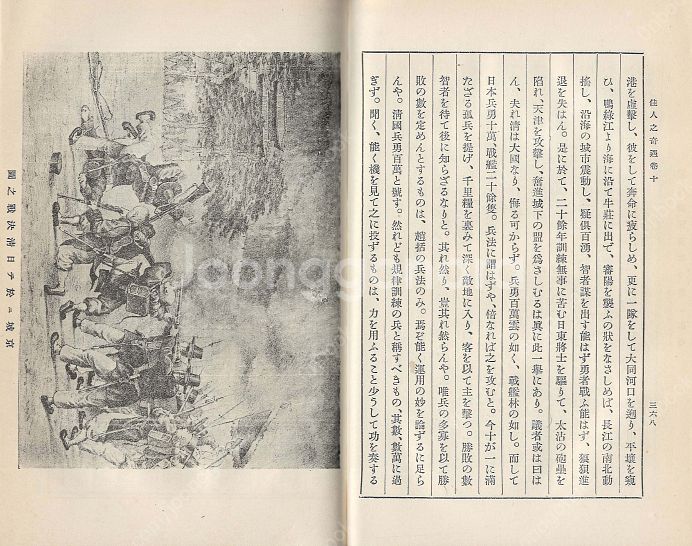 佳人之奇遇卷十
三六八
港を虛擊し、彼をして奔命に疲らしめ、更に一隊をして大同河口を遡り、平壤を窺
ひ、鴨綠江より海に沿て牛莊に出で、審陽を襲ふの狀をなさしめば、長江の南北動
搖し、沿海の城市震動し、疑倶百湧、智者謀を出す能はず勇者戰ふ能はず、狼狽進
退を失はん。是に於て、二十餘年訓練無事に苦む日東將士を驅りて、太沽の砲壘を
陷れ、天津を攻擊し、奮進城下の盟を爲さしむるは眞に此一擧にあり。議者或は曰は
ん、夫れ淸は大國なり、侮る可からず。兵勇百萬雲の如く、戰艦林の如し。而して
日本兵勇十萬、戰艦二十餘隻。兵法に謂はずや、倍なれば之を攻むと。今十が一に滿
たざる孤兵を提げ、千里糧を裹みて深く敵地に入り、客を以て主を擊つ。勝敗の數
智者を待て後に知らざるなりと。其れ然り、豈其れ然らんや。唯兵の多寡を以て勝
敗の數を定めんとするものは、趙括の兵法のみ。焉ぞ能く運用の妙を論ずるに足ら
んや。淸國兵勇百萬と號す。然れども規律訓練の兵と稱すべきもの、其數、數萬に過
ぎず。聞く、能く機を見て之に投ずるものは、力を用ふること少うして功を奏する
京城ニ於テ日淸決戰之圖